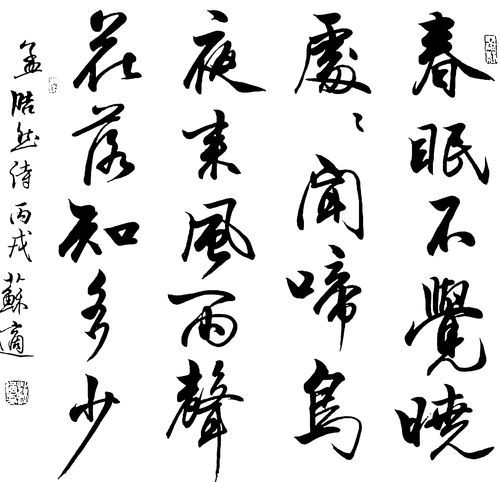 春眠不覺曉
處〻聞啼鳥
夜来風雨聲
花落知多少
孟浩然詩 丙戌 蘇適